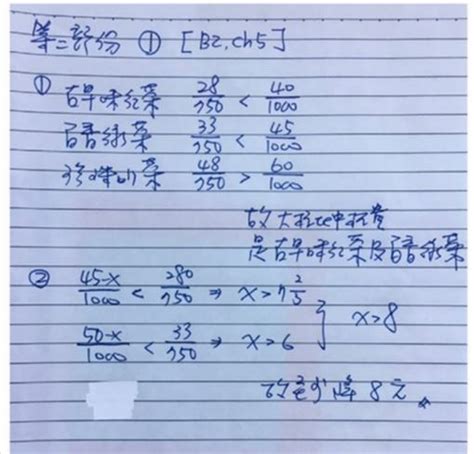 第二部份 ① [B2, ch5]
① 古早味紅茶 28/750 < 40/1000
百香綠茶 33/750 < 45/1000
珍珠奶茶 48/750 > 60/1000
故大杯比中杯貴
是古早味紅茶及百香綠茶
② 45-x/1000 < 280/750 ⇒ x>7 2/5
50-x/1000 < 33/750 ⇒ x>6
x>8
故至少降 8 元。